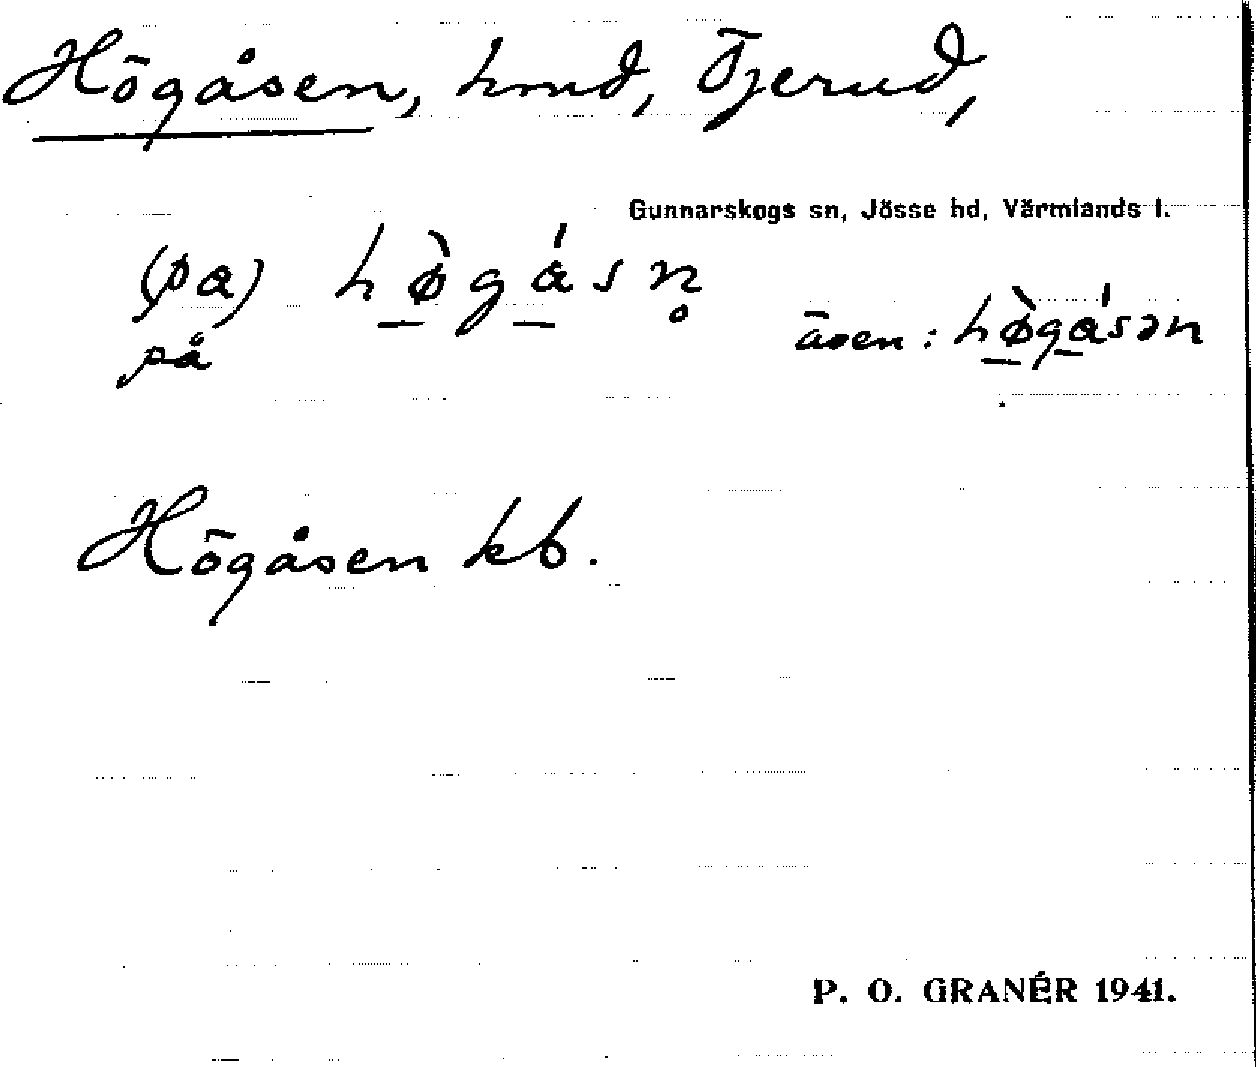 Högåsen, hmd, Tjerud,
Gunnarskogs sn, Jösse hd, Värmlands l.
(pa) hø̀gásn̥
på
även: hø̀gásən
Högåsen kb.
P. O. GRANÉR 1941.